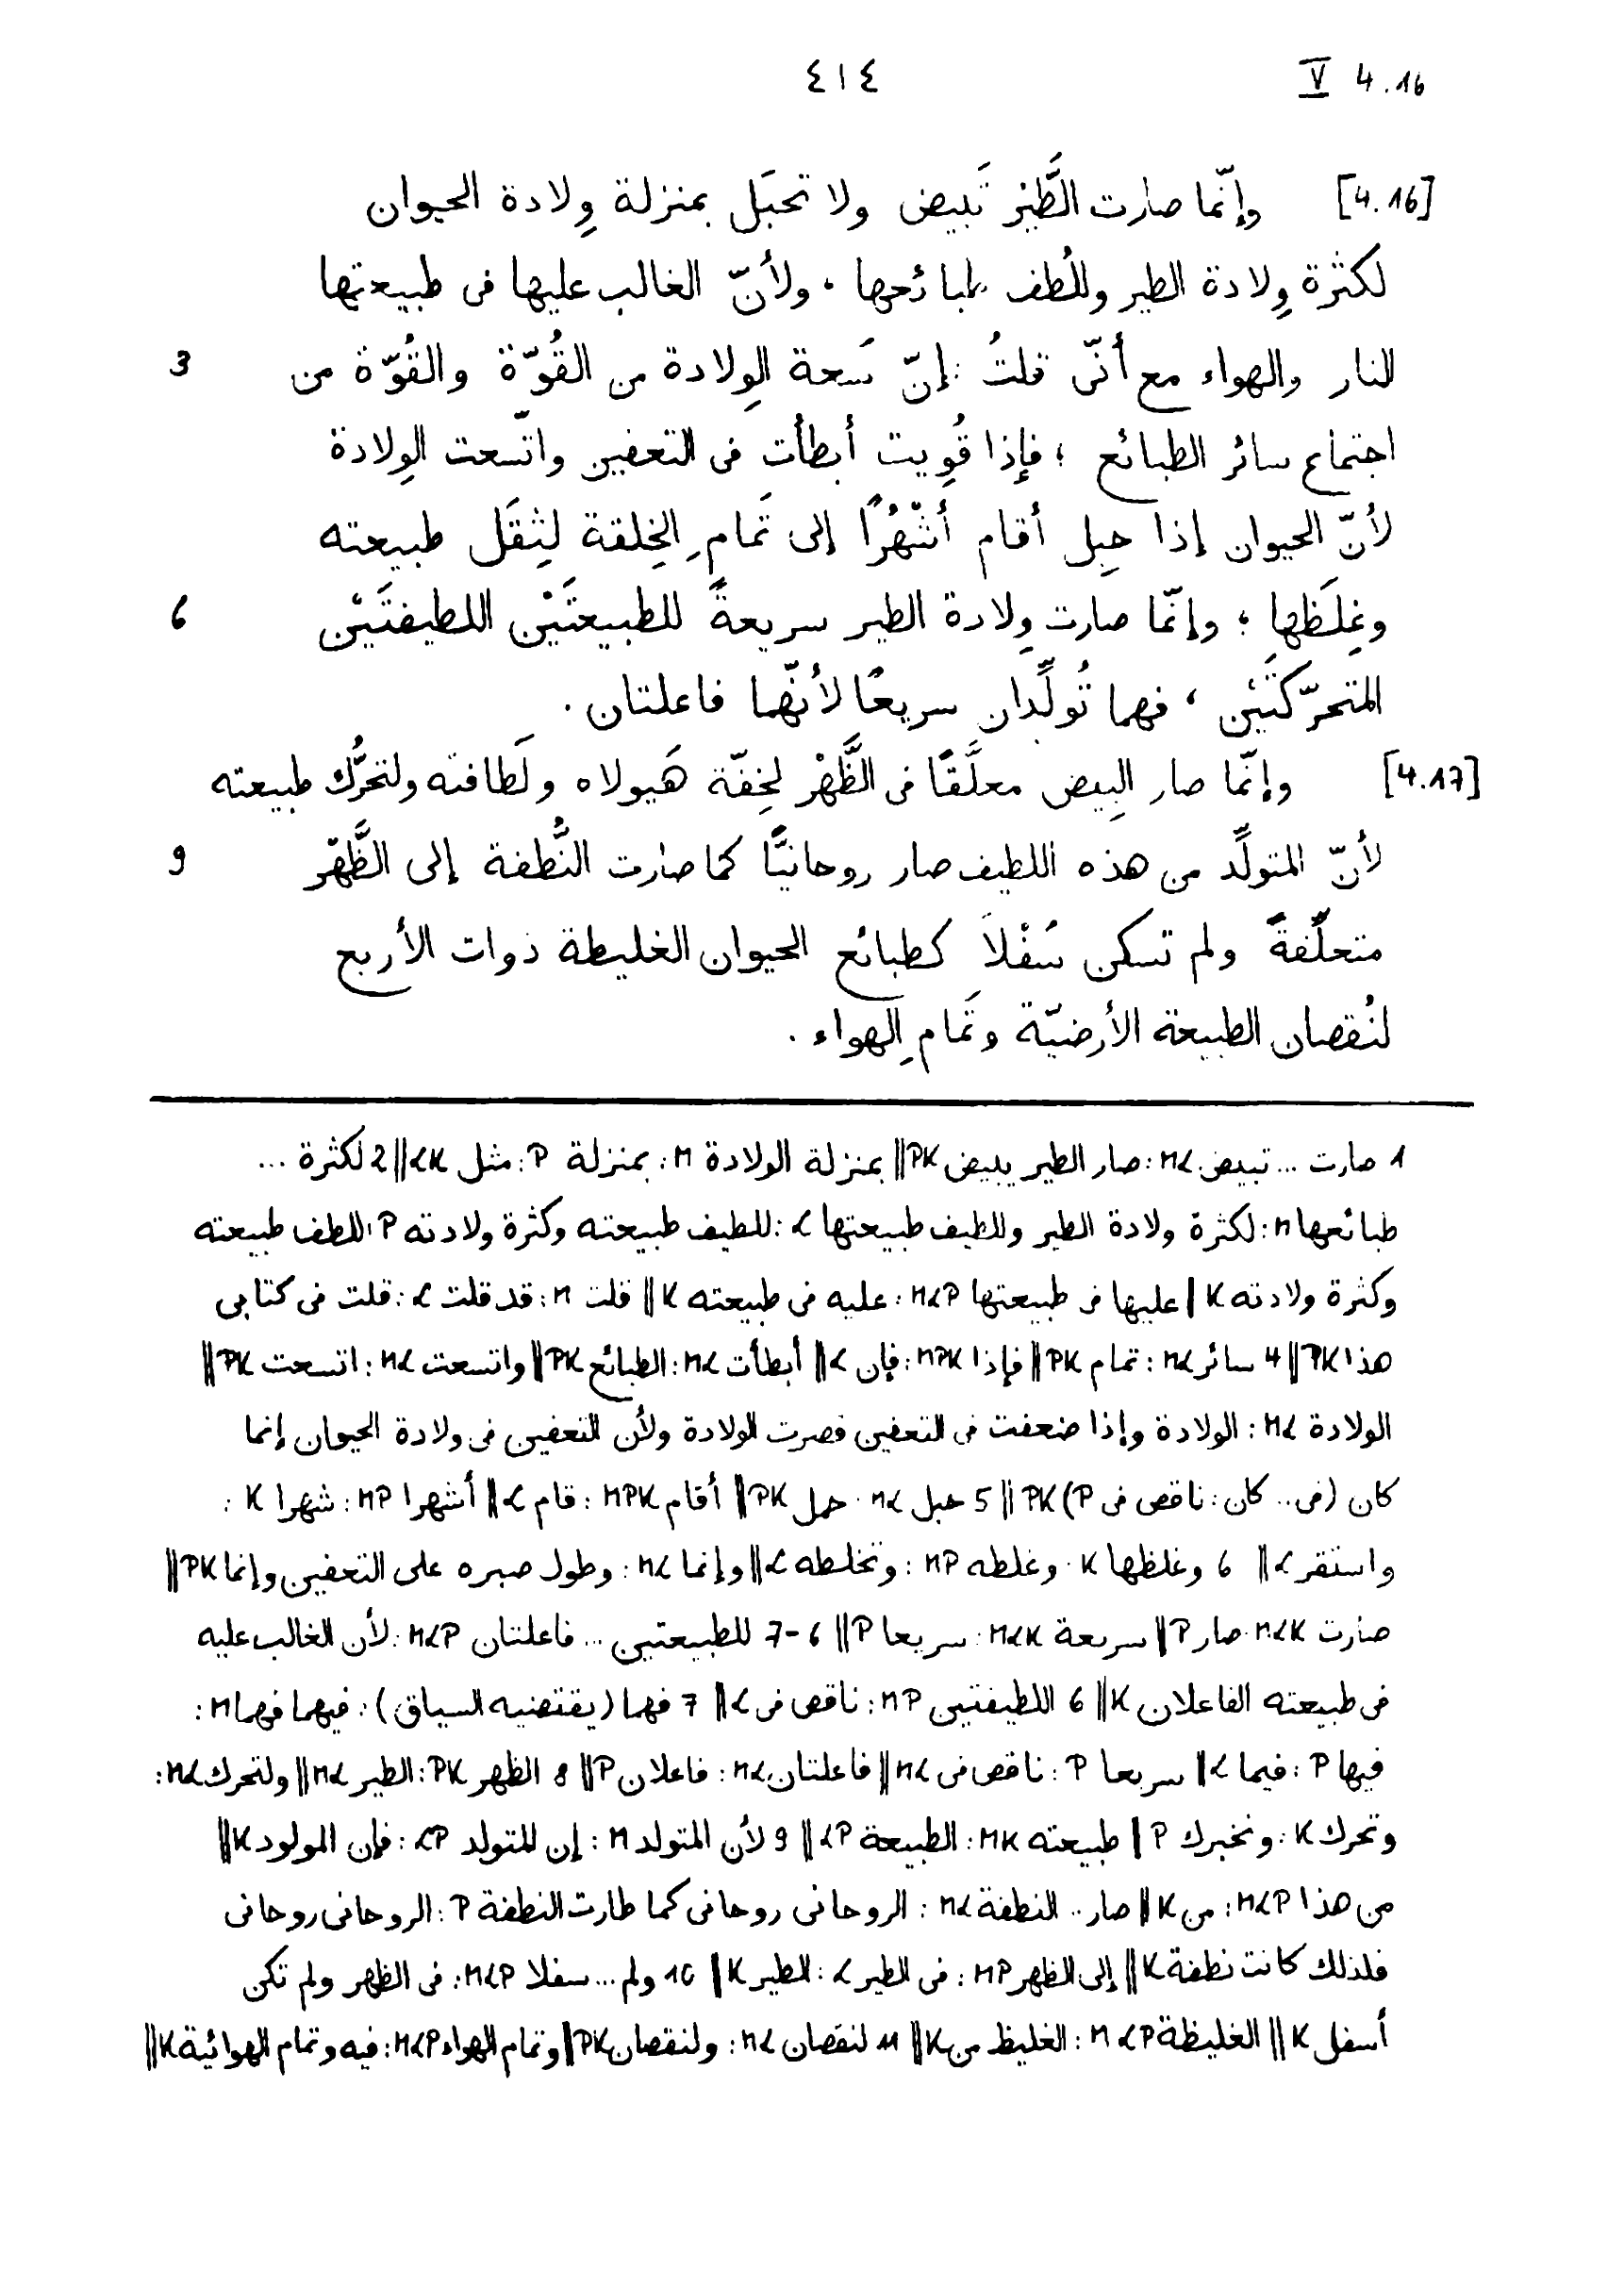 ٤١٤ V 4.16
[4.16] وإنّما صارت الطَّيْر تَبيض ولا تحبَل بمنزلة وِلادة الحيوان
لكثرة وِلادة الطير وللُطف طبائعها ، ولأنّ الغالب عليها فى طبيعتها
3 النار والهواء مع أنّى قلتُ : إنّ سَعة الوِلادة من القُوّة والقُوّة من
اجتماع سائر الطبائع ؛ فإذا قُوِيت أبطأت فى التعفين واتّسعت الوِلادة
لأنّ الحيوان إذا حبِل أقام أشْهُرًا إلى تَمامِ الخِلقة لِثِقَل طبيعته
6 وغِلَظِها ؛ وإنّما صارت وِلادة الطير سريعةً للطبيعتَيْن اللطيفتَيْن
المتحرّكتَيْن ، فهما تُولِّدان سريعًا لأنّهما فاعلتان .
[4.17] وإنّما صار البِيض معلَّقًا فى الظَّهْر لِخِفّة هَيولاه ولَطافته ولتحرُّك طبيعته
9 لأنّ المتولِّد من هذه اللطيف صار روحانيًّا كما صارت النُّطفة إلى الظَّهْر
متعلّقةً ولم تسكن سَفْلاً كطبائع الحيوان الغليظة ذوات الأربع
لنُقصان الطبيعة الأرضيّة وتَمامِ الهواء .
1 صارت ... تبيض M L : صار الطير يبيض PK || بمنزلة الولادة M : بمنزلة P : مثل LK || 2 لكثرة ...
طبائعها M : لكثرة ولادة الطير وللطيف طبيعتها L : للطيف طبيعته وكثرة ولادته P : اللطف طبيعته
وكثرة ولادته K | عليها فى طبيعتها MLP : عليه فى طبيعته K || قلت M : قد قلت L : قلت فى كتابى
هذا PK || 4 سائر ML : تمام PK || فإذا MPK : فإن L || أبطأت ML : الطبائع PK || واتسعت ML : اتسعت PK ||
الولادة ML : الولادة وإذا ضعفت فى التعفين قصرت الولادة ولأن التعفين فى ولادة الحيوان إنما
كان (فى .. كان : ناقص فى P) PK || 5 حبل ML : حمل PK || أقام MPK : قام L || أشهرا MP : شهرا K :
واستقر L || 6 وغلظها K : وغلظه MP : وتخلطه L || وإنما ML : وطول صبره على التعفين وإنما PK ||
صارت MLK : صار P || سريعة MLK : سريعا P || 6-7 للطبيعتين ... فاعلتان MLP : لأن الغالب عليه
فى طبيعته الفاعلان K || 6 اللطيفتين MP : ناقص فى L || 7 فهما (يقتضيه السياق) : فيهما فهما M :
فيها P : فيما L || سريعا P : ناقص فى ML || فاعلتان ML : فاعلان P || 8 الظهر PK : الطير ML || ولتحرك ML :
وتحرك K : ونخبرك P | طبيعته MK : الطبيعة LP || 9 لأن المتولد M : إن المتولد LP : فإن المولود K ||
من هذا MLP : من K || صار .. النطفة ML : الروحانى روحانى كما طارت النطفة P : الروحانى روحانى
فلذلك كانت نطفة K || إلى الظهر MP : فى الطير L : الطير K | 10 ولم ... سفلا MLP : فى الظهر ولم تكن
أسفل K || الغليظة MLP : الغليظ من K || 11 لنقصان ML : ولنقصان PK || وتمام الهواء MLP : فيه وتمام الهوائية K ||